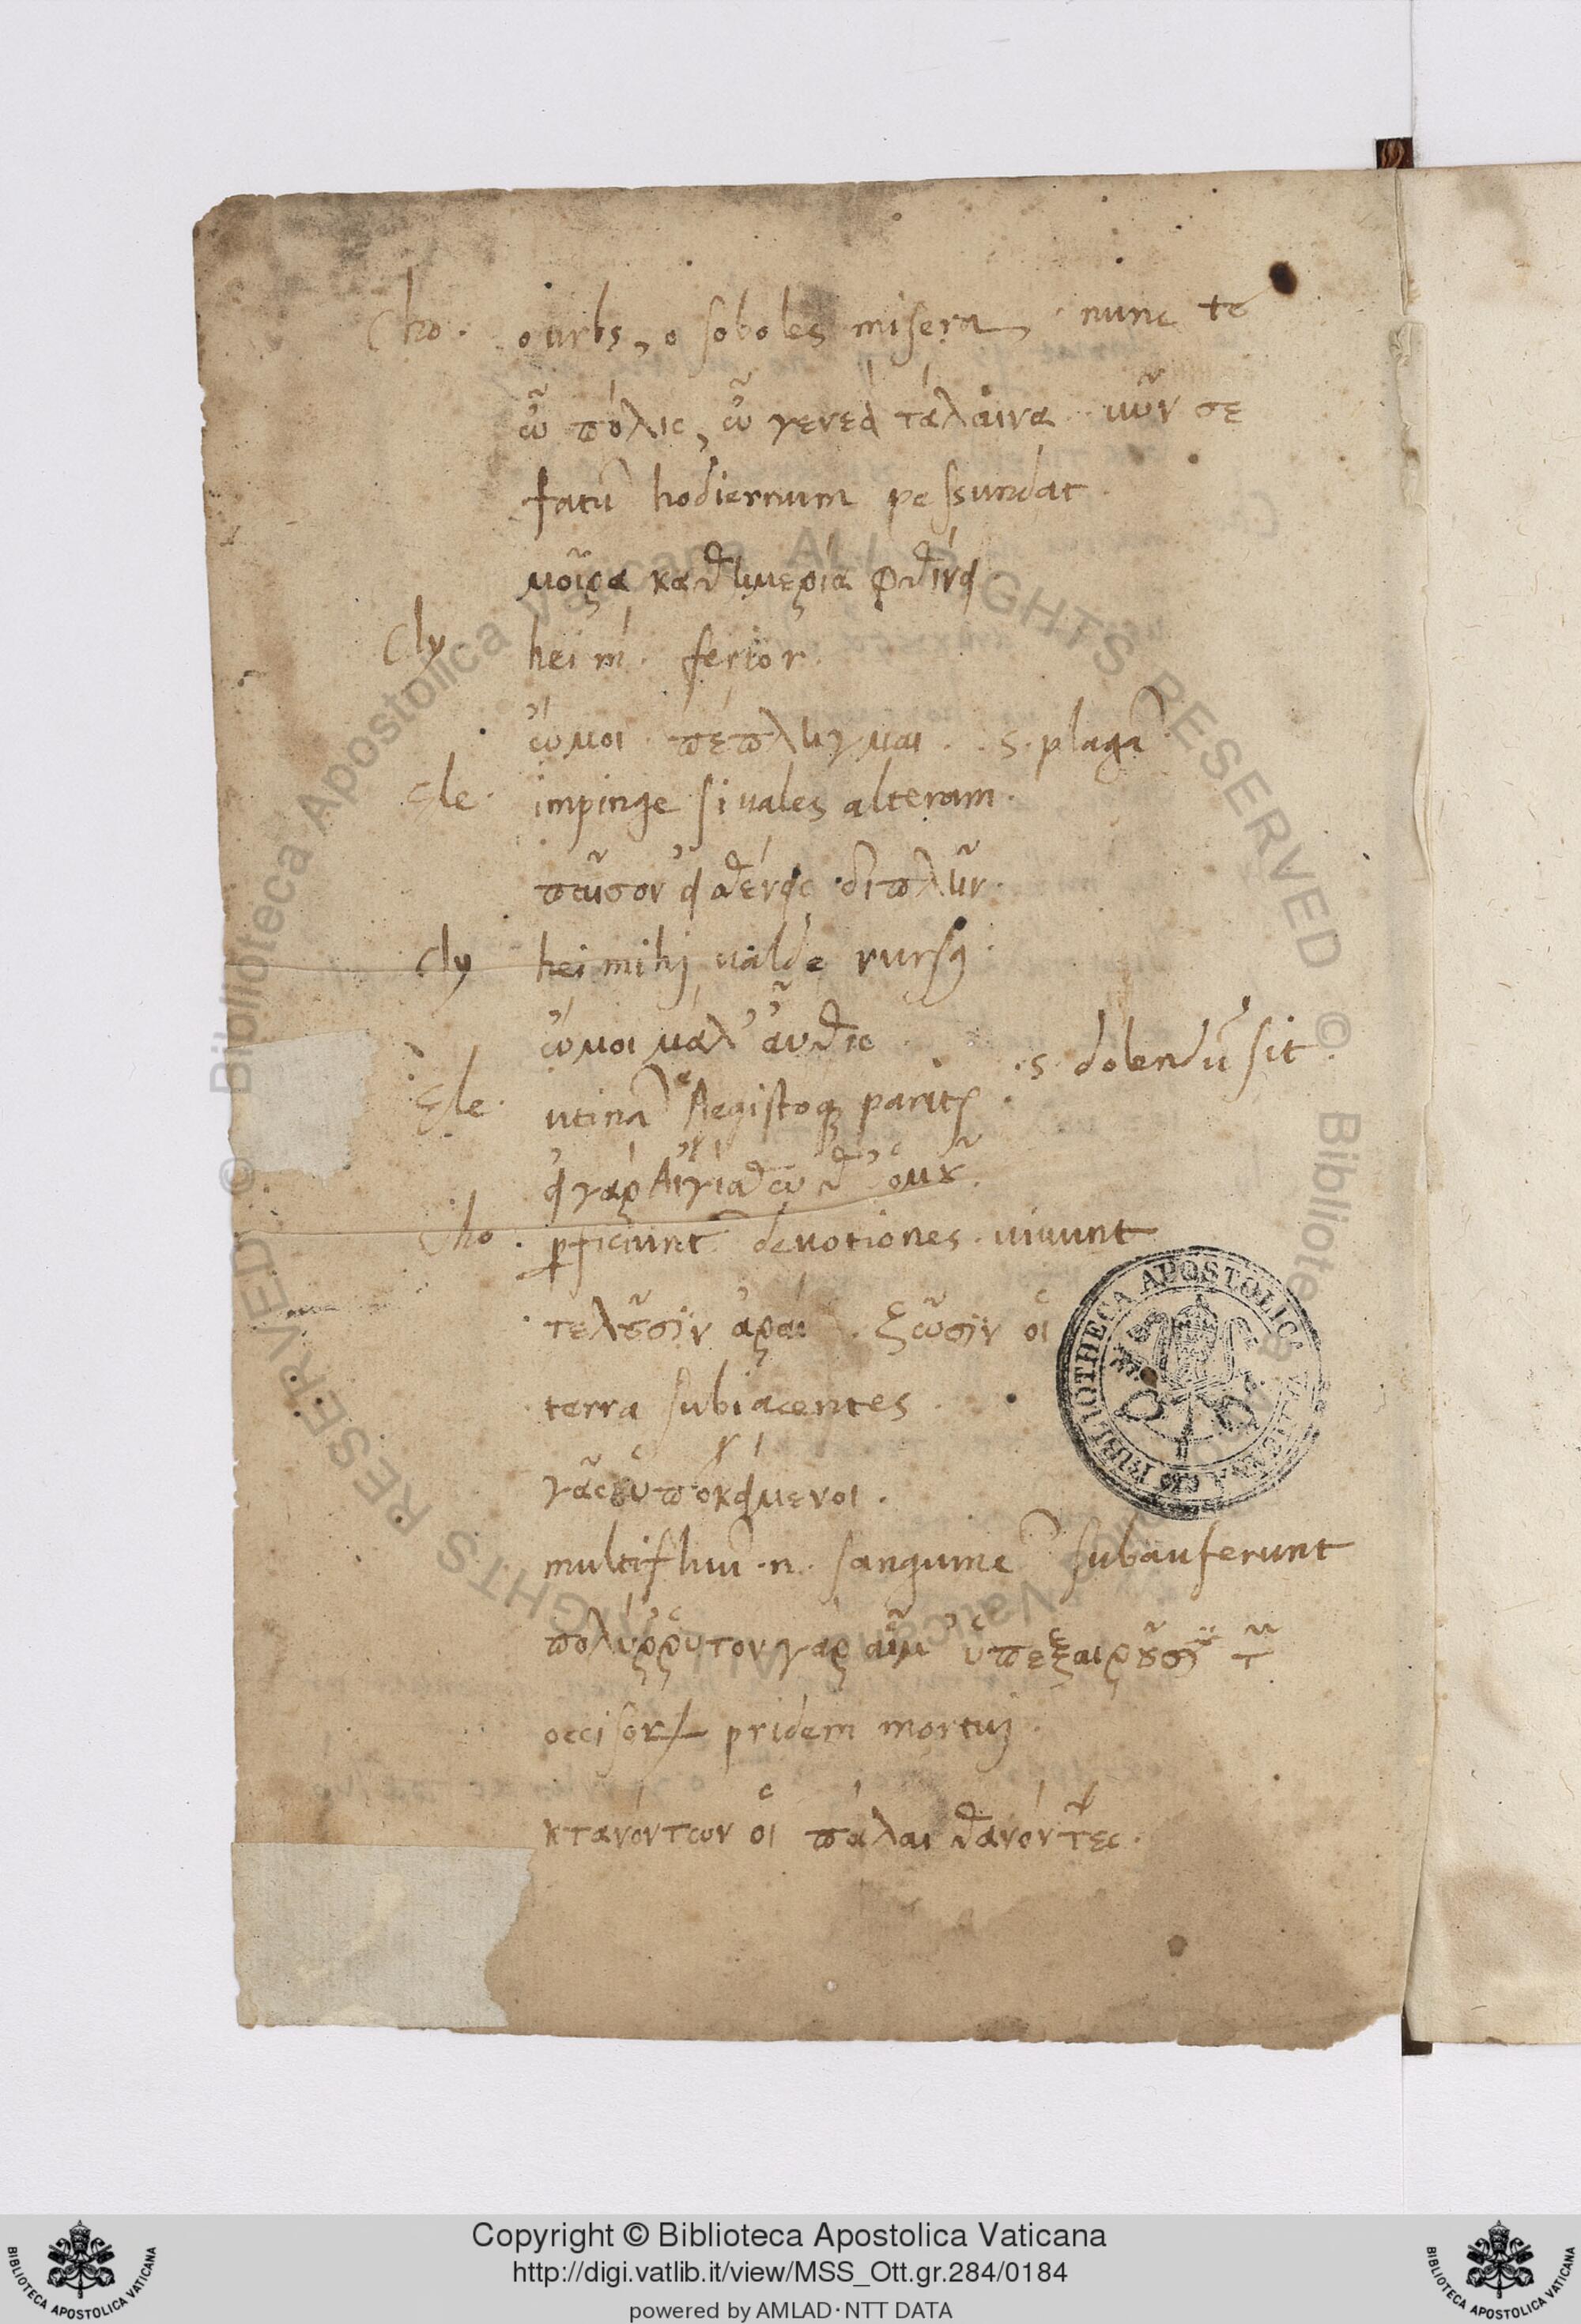 Cho. o urbs, o soboles misera, nunc te
ὦ πόλις, ὦ γενεὰ τάλαινα νῦν σε
fatũ hodiernum pessundat.
μοῖρα καθημερία φθίνει
Cly hei m. ferior.
ὤμοι πέπληγμαι. .s. plagã
Ele. impinge si uales alteram.
παῖσον εἰ σθένεις διπλῆν.
Cly hei mihj ualde rursꝯ.
ὤμοι μάλ' αὖθις
.s. dolendũ sit.
Ele. utinã Aegistoqꝫ parit̃.
εἰ γὰρ Αἰγίσθῳ θ' ὁμοῦ.
Cho. ꝑficiunt deuotiones. uiuunt
τελοῦσιν ἀραί. ζῶσιν οἱ
terra subiacentes.
γᾶς ὑποκείμενοι.
multifluũ .n. sanguinẽ subauferunt
πολύρρυτον γὰρ αἷμ' ὑπεξαιροῦσι τῶν
occisorꝝ pridem mortuj.
κτανόντων οἱ πάλαι θανόντες.
BIBLIOTHECA APOSTOLICA VATICANA
© Biblioteca Apostolica Vaticana ALL RIGHTS RESERVED
Copyright © Biblioteca Apostolica Vaticana
http://digi.vatlib.it/view/MSS_Ott.gr.284/0184
powered by AMLAD·NTT DATA
BIBLIOTECA APOSTOLICA VATICANA
BIBLIOTECA APOSTOLICA VATICANA